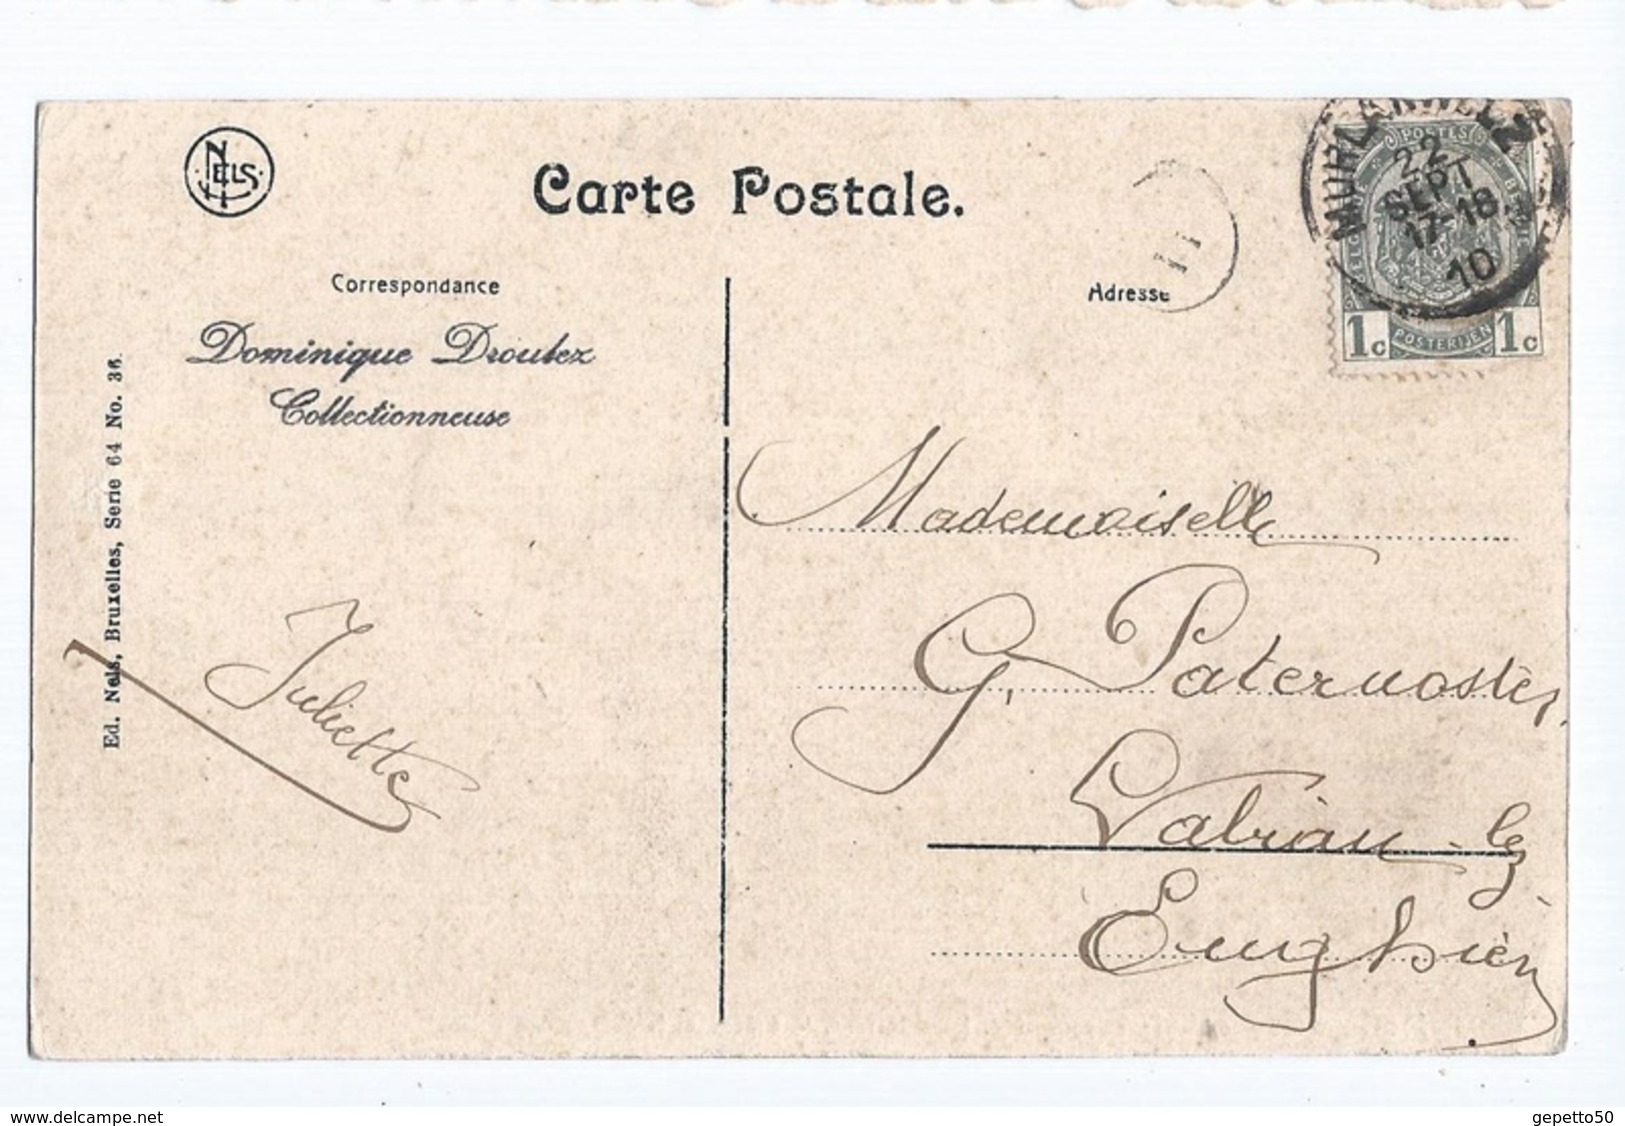 NELS
Carte Postale.
Correspondance
Adresse
MORLANWELZ
22
SEPT
17-18
10
POSTES
BELGIQUE
BELGIE
1c
POSTERIJEN
1c
11
Dominique Droulez
Collectionneuse
Ed. Nels, Bruxelles, Serie 64 No. 36.
Juliette
Mademoiselle
G. Paternoster
Labiau-lez
Enghien
www.delcampe.net
gepetto50